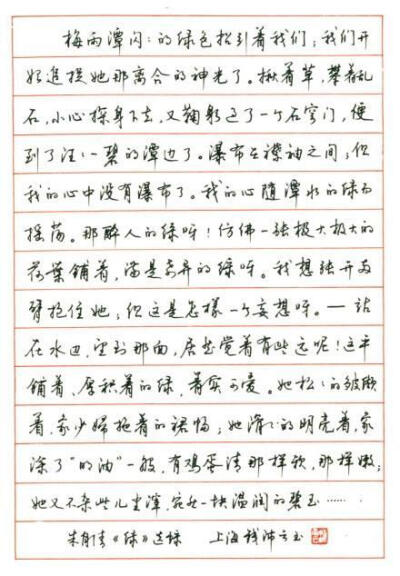 梅雨潭闪闪的绿色招引着我们；我们开
始追捉她那离合的神光了。揪着草，攀着乱
石，小心探身下去，又鞠躬过了一个石穹门，便
到了汪汪一碧的潭边了。瀑布在襟袖之间；但
我的心中没有瀑布了。我的心随潭水的绿而
摇荡。那醉人的绿呀！仿佛一张极大极大的
荷葉铺着，满是奇异的绿呀。我想张开两
臂抱住她；但这是怎样一个妄想呀。—站
在水边，望到那面，居然觉着有些远呢！这平
铺着，厚积着的绿，着实可爱。她松松的皱缬
着，象少婦拖着的裙幅；她滑滑的明亮着，象
涂了“明油”一般，有鸡蛋清那样软，那样嫩；
她又不杂些儿尘滓，宛然一块温润的碧玉……
朱自清《绿》选录 上海 钱沛云书